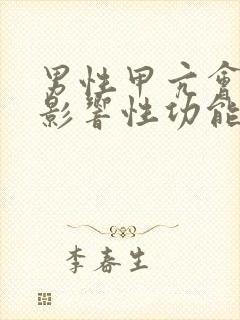 男性甲亢會
影響性功能
李春生